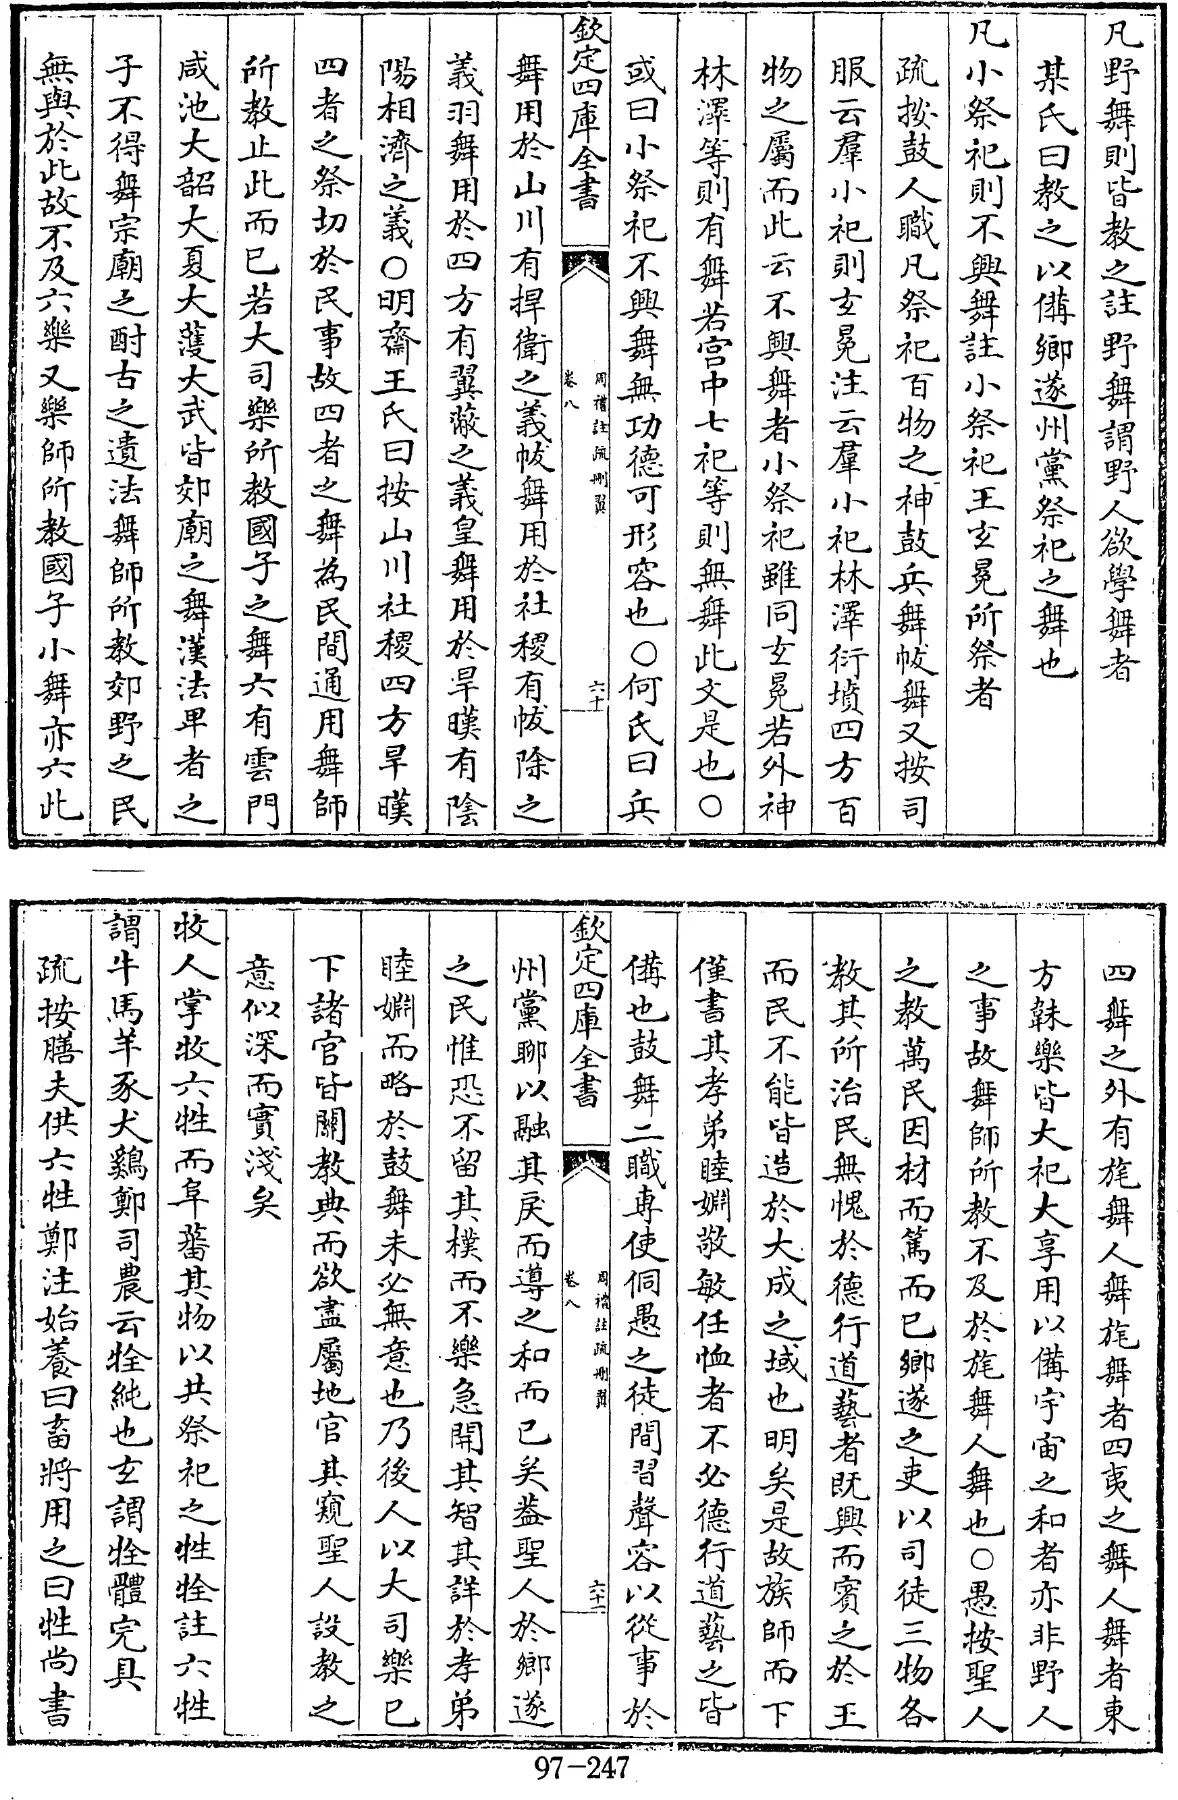 凡野舞則皆教之註野舞謂野人欲學舞者
某氏曰教之以備鄉遂州黨祭祀之舞也
凡小祭祀則不興舞註小祭祀王玄冕所祭者
疏按鼓人職凡祭祀百物之神鼓兵舞帗舞又按司
服云羣小祀則玄冕注云羣小祀林澤衍墳四方百
物之屬而此云不興舞者小祭祀雖同玄冕若外神
林澤等則有舞若宮中七祀等則無舞此文是也○
或曰小祭祀不興舞無功德可形容也○何氏曰兵
欽定四庫全書
周禮註疏刪翼
卷八
六十
舞用於山川有捍衛之義帗舞用於社稷有帗除之
義羽舞用於四方有翼蔽之義皇舞用於旱暵有陰
陽相濟之義○明齋王氏曰按山川社稷四方旱暵
四者之祭切於民事故四者之舞為民間通用舞師
所教止此而已若大司樂所教國子之舞六有雲門
咸池大韶大夏大蓫大武皆郊廟之舞漢法卑者之
子不得舞宗廟之酎古之遺法舞師所教郊野之民
無與於此故不及六樂又樂師所教國子小舞亦六此
四舞之外有旄舞人舞旄舞者四夷之舞人舞者東
方韎樂皆大祀大享用以備宇宙之和者亦非野人
之事故舞師所教不及於旄舞人舞也○愚按聖人
之教萬民因材而篤而已鄉遂之吏以司徒三物各
教其所治民無愧於德行道藝者既興而賓之於王
而民不能皆造於大成之域也明矣是故族師而下
僅書其孝弟睦婣敬敏任恤者不必德行道藝之皆
備也鼓舞二職専使侗愚之徒間習聲容以從事於
欽定四庫全書
周禮註疏刪翼
卷八
六十一
州黨聊以融其戾而導之和而已矣葢聖人於鄉遂
之民惟恐不留其樸而不樂急開其智其詳於孝弟
睦婣而略於鼓舞未必無意也乃後人以大司樂已
下諸官皆關教典而欲盡屬地官其窺聖人設教之
意似深而實淺矣
牧人掌牧六牲而阜蕃其物以共祭祀之牲牷註六牲
謂牛馬羊豕犬鷄鄭司農云牷純也玄謂牷體完具
疏按膳夫供六牲鄭注始養曰畜將用之曰牲尚書
97-247